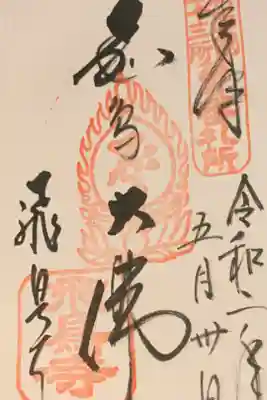 奉拝
令和二年
五月卅日
飛鳥大佛
飛鳥寺
飛鳥寺